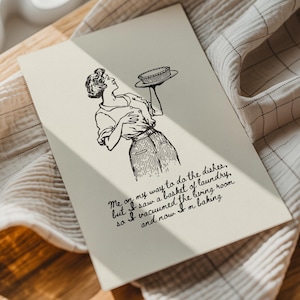 Me on my way to do the dishes,
but I saw a basket of laundry,
so I vacuumed the living room
and now I'm baking